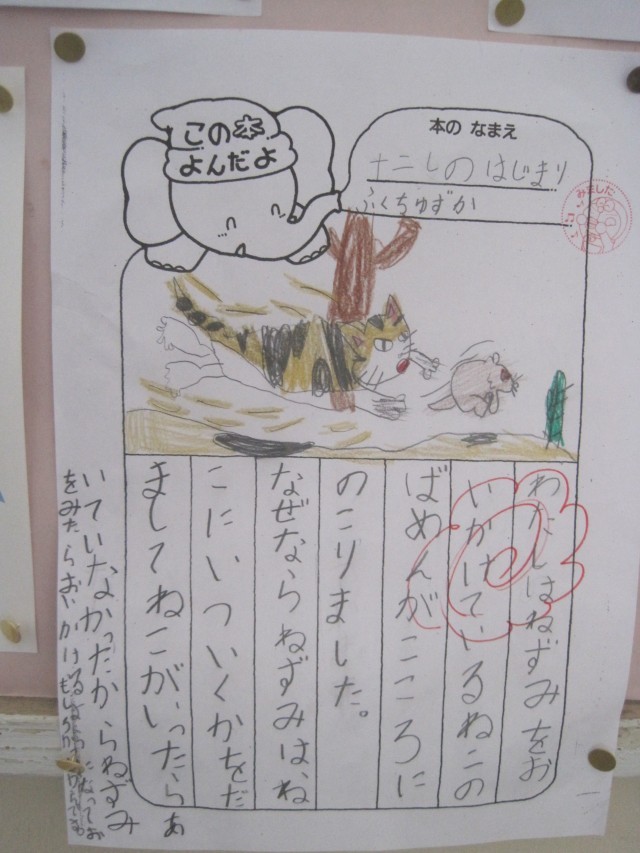 この本
よんだよ
本の なまえ
十二しの はじまり
ふくちゅずか
みました
わたしはねずみをお
いかけているねこの
ばめんがこころに
のこりました。
なぜならねずみは、ね
こにいついくかをだ
ましてねこがいったら あ
いていなかったからねずみ
をみたらおいかける